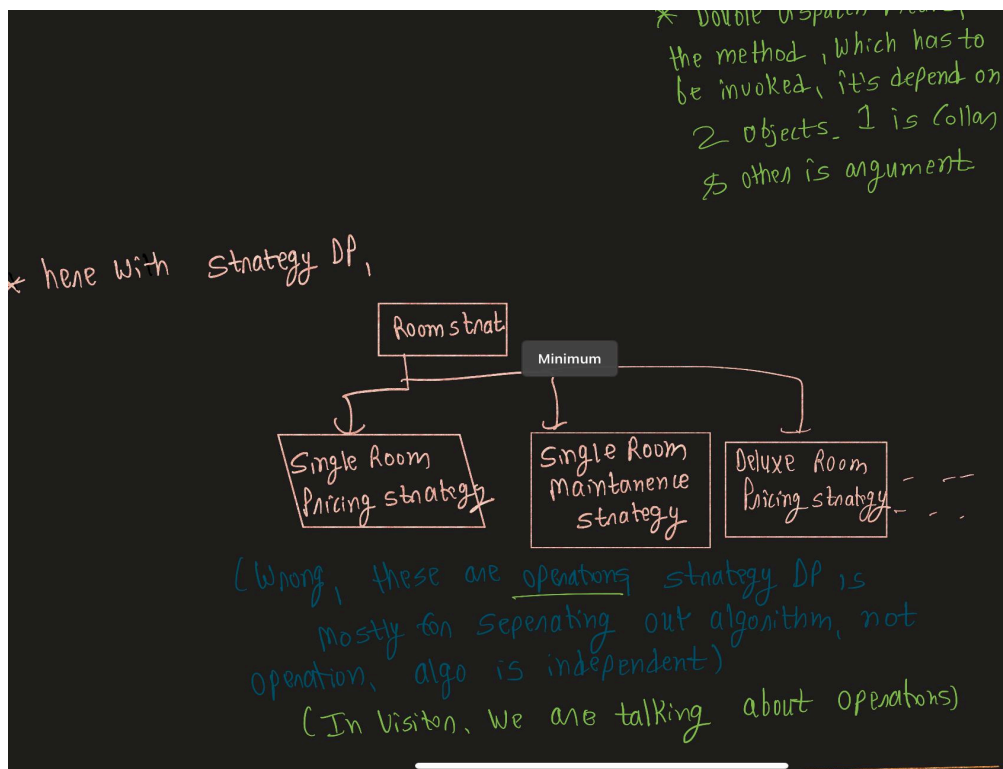 * Double dispatch means,
the method, which has to
be invoked, it's depend on
2 objects. 1 is Collar
& other is argument
* here with strategy DP,
Room strat
Minimum
Single Room
Pricing strategy
Single Room
Maintanence
strategy
Deluxe Room
Pricing strategy
(Wrong, these are operations strategy DP is
mostly for seperating out algorithm, not
operation, algo is independent)
(In Visitor, We are talking about operations)